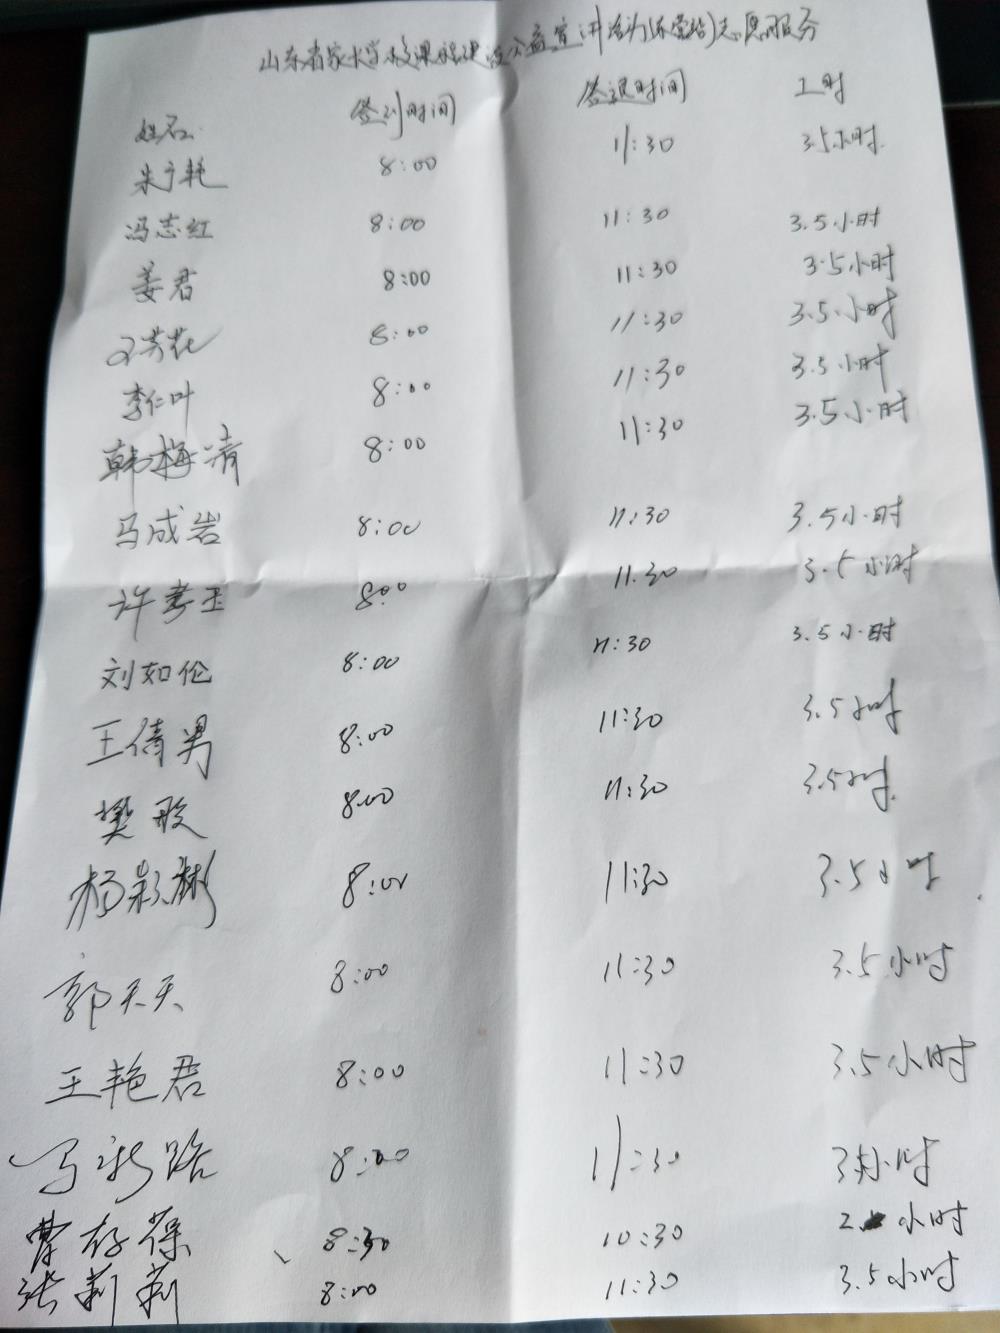 山东省家长学校课程建设公益宣讲活动(东营站)志愿服务
姓名 签到时间 签退时间 工时
朱广艳 8:00 11:30 3.5小时
冯志红 8:00 11:30 3.5小时
姜君 8:00 11:30 3.5小时
芳花 8:00 11:30 3.5小时
李仁叶 8:00 11:30 3.5小时
韩梅清 8:00 11:30 3.5小时
马成岩 8:00 11:30 3.5小时
许孝玉 8:00 11:30 3.5小时
刘如伦 8:00 11:30 3.5小时
王倩男 8:00 11:30 3.5小时
樊 8:00 11:30 3.5小时
杨颖彬 8:00 11:30 3.5小时
郭天天 8:00 11:30 3.5小时
王艳君 8:00 11:30 3.5小时
马新路 8:00 11:30 3.5小时
曹存葆 8:30 10:30 2小时
张莉莉 8:00 11:30 3.5小时